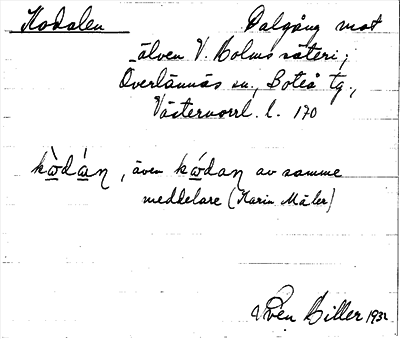 Kodalen Dalgång mot
älven V. Holms säteri;
Överlännäs sn., Boteå tg.,
Västernorrl. l. 170
kὼdáŋ, även kώdaŋ av samme
meddelare (Karin Mäler)
Sven Biller 1932